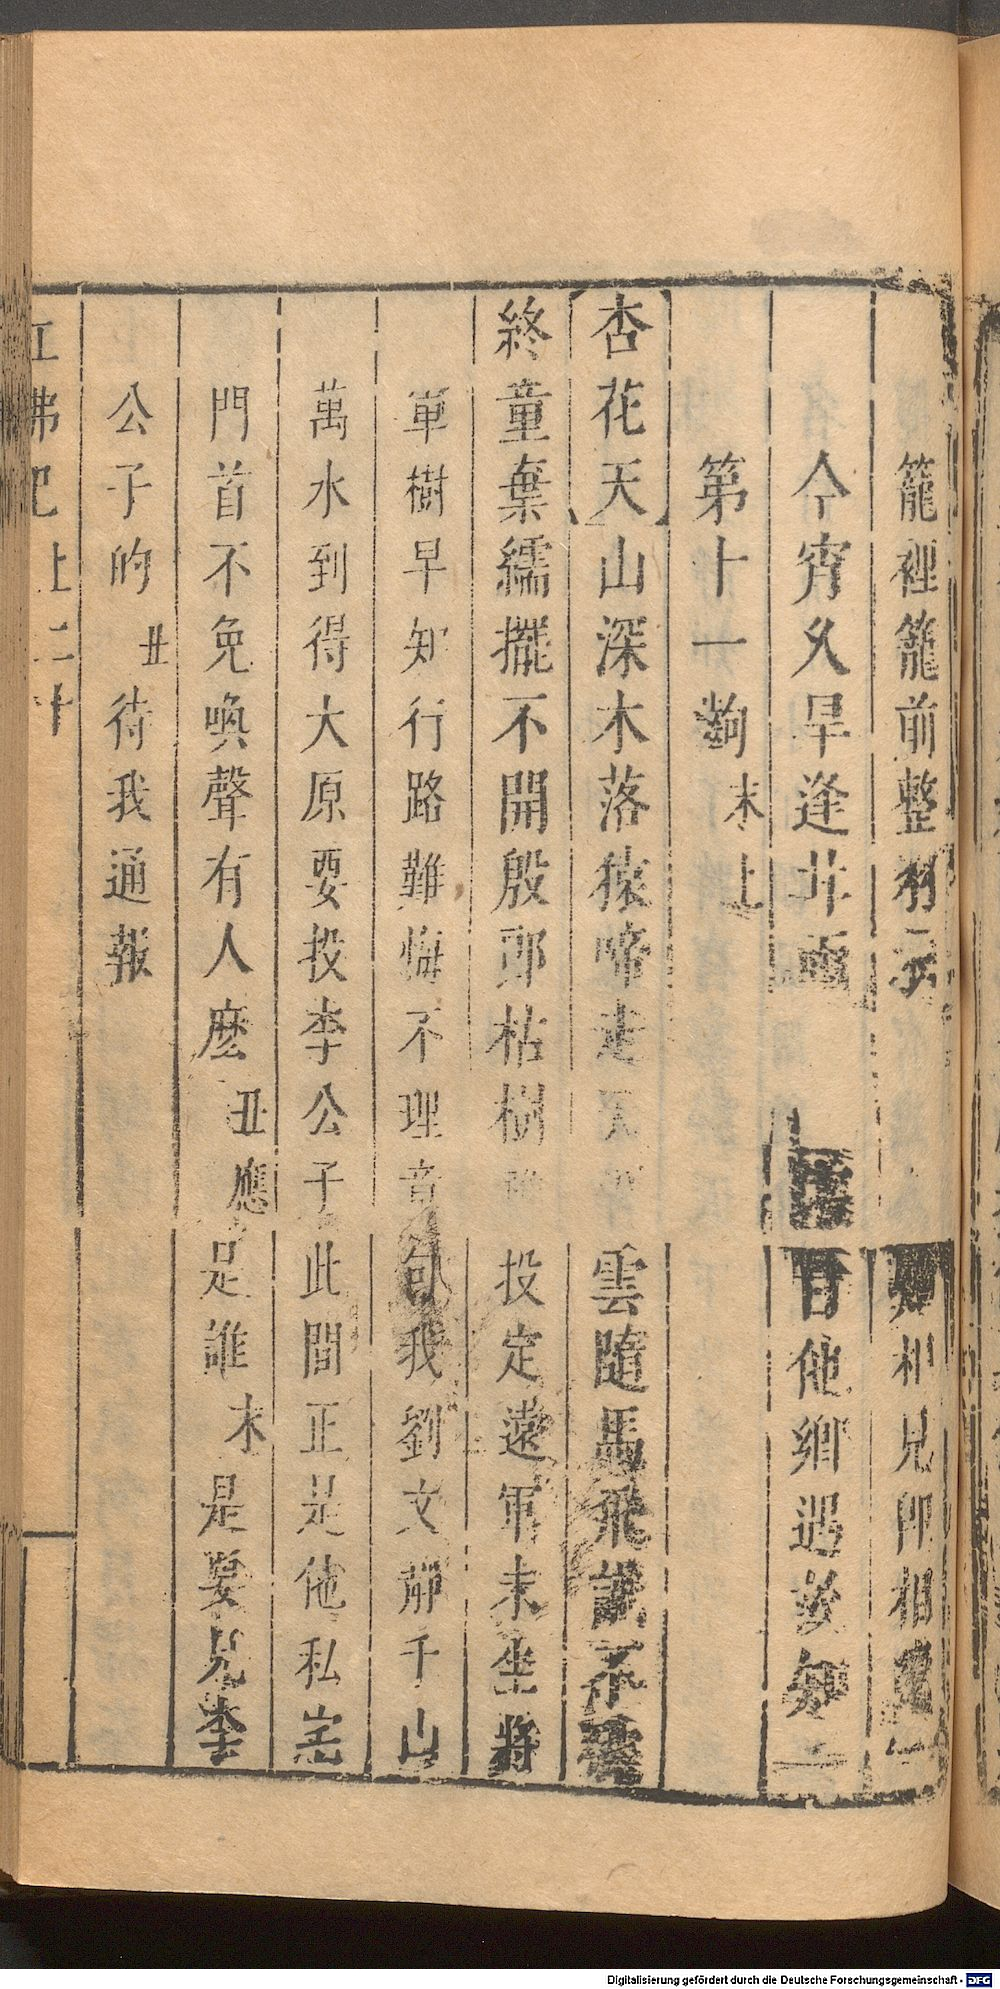 籠裡籠前整羽 相見即相
今宵久旱逢甘雨 日他鄉遇故知
第十一齣 末上
【杏花天】山深木落猿啼走 雲隨馬飛
終童棄繻擺不開殷郎枯樹 投定遠軍未坐將
軍樹早知行路難悔不理章句我劉文靜千山
萬水到得大原要投李公子此間正是他私宅
門首不免喚聲有人麽 丑應 是誰 末 是要見李
公子的 丑 待我通報
紅拂記 上 二十
Digitalisierung gefördert durch die Deutsche Forschungsgemeinschaft - DFG